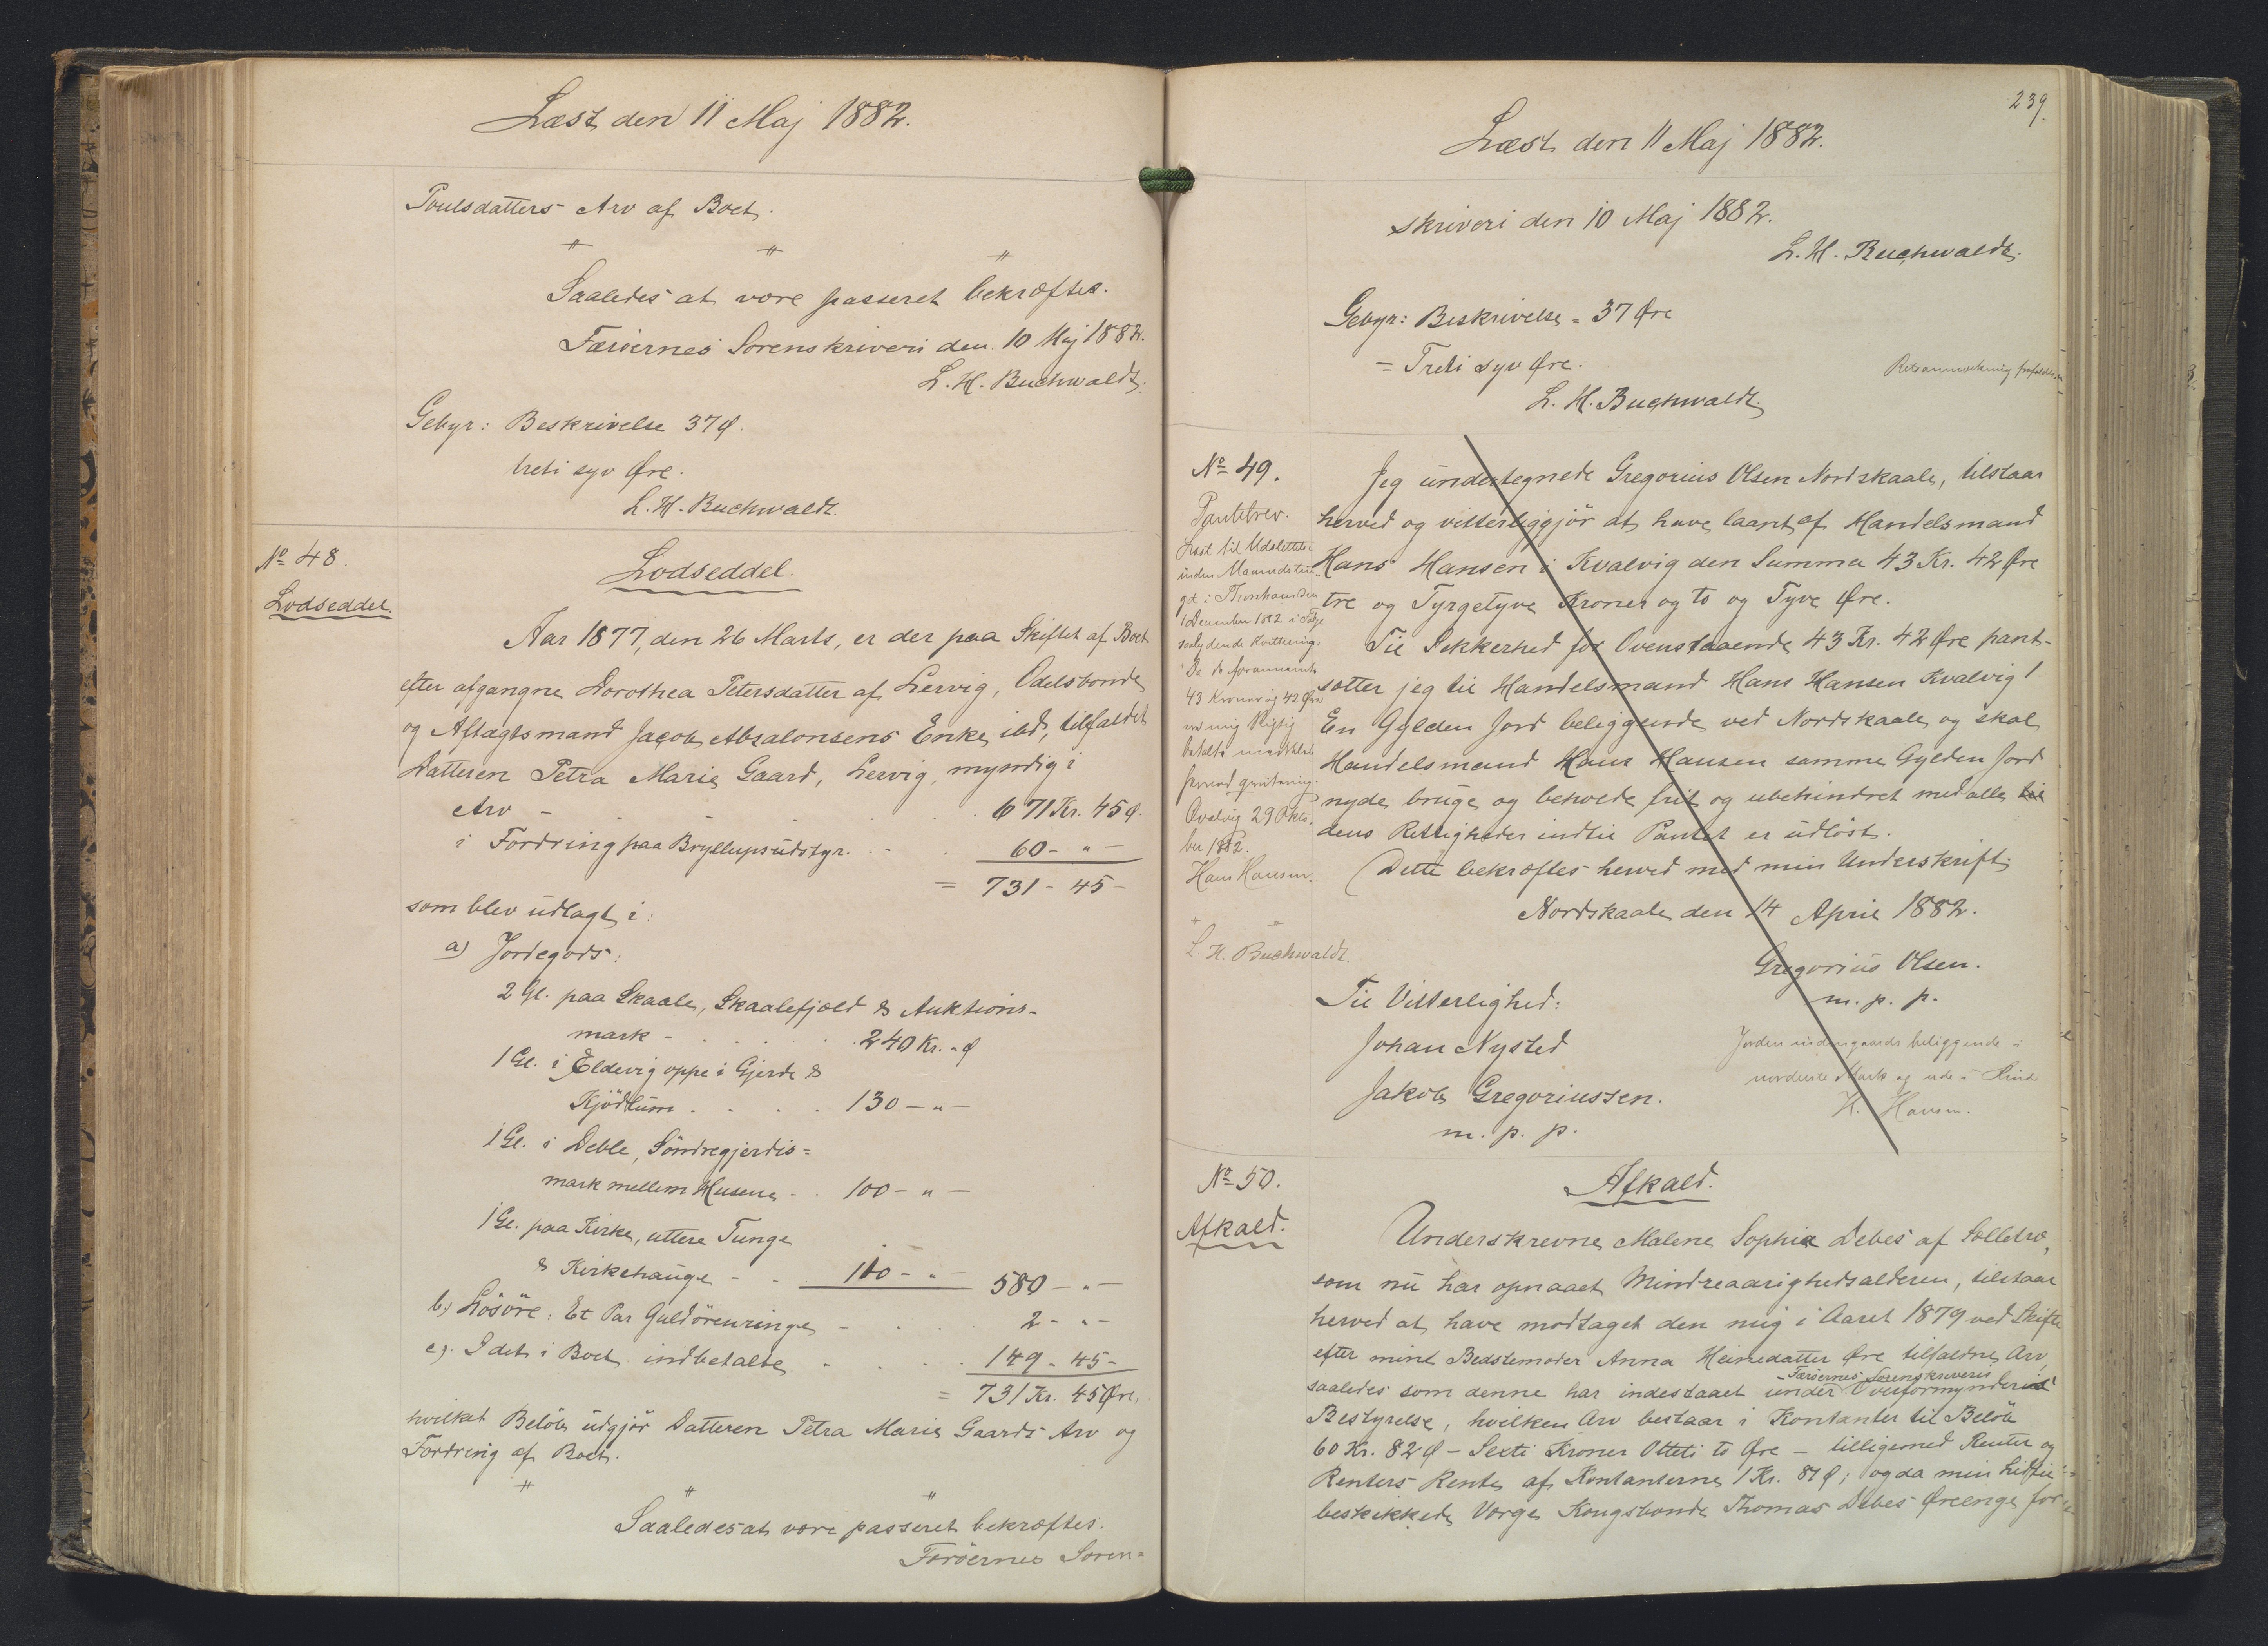 Læst den 11 Maj 1882.
Poulsdatters Arv af Boet.
〃 〃 〃
Saaledes at være passeret bekræftes.
Færøernes Sorenskriveri den 10 Maj 1882.
L. H. Buchwaldt.
Gebyr: Beskrivelse 37 Ø.
treti syv Øre.
L. H. Buchwaldt.
No 48.
Lodseddel.
Lodseddel.
Aar 1877, den 26 Marts, er der paa Skiftet af Boet
efter afgangne Dorothea Petersdatter af Lervig, Odelsbonde
og Aftægtsmand Jacob Absalonsens Enke ibd, tilfaldet
Datteren Petra Marie Gaard, Lervig, myndig i
Arv - . . . . 671 Kr. 45 Ø.
i Fordring paa Bryllupsudstyr. - . 60 - " -
= 731 - 45 -
som blev udlagt i:
a) Jordegods:
2 Gl. paa Skaale, Skaalefjæld & Auktions-
mark - . . . . 240 Kr. " Ø
1 Gl. i Eldevig oppe i Gjerde &
Kjødlum . . . . 130 - " -
1 Gl. i Deble, Søndregjerdis=
mark mellem Husene - . 100 - " -
1 Gl. paa Kirke, uttere Tunge
& Kirkehauge - - . 110 - " - 580 - " -
b.) Løsøre: Et Par Guldørenringe - . . . 2 - " -
c). I det i Boet indbetalte - . . . 149 - 45 -
= 731 Kr. 45 Øre,
hvilket Beløb udgjør Datteren Petra Marie Gaards Arv og
Fordring af Boet.
〃 〃 〃
Saaledes at være passeret bekræftes.
Færøernes Soren=
239.
Læst den 11 Maj 1882.
skriveri den 10 Maj 1882.
L. H. Buchwaldt.
Gebyr: Beskrivelse = 37 Øre
= Treti syv Øre.
L. H. Buchwaldt.
Retsanmærkning
No 49.
Pantebrev.
Læst til Udslettelse
inden
get i Thorshavn den
1 December 1882 i Følge
saalydende Kvittering:
"Da de forannævnte
43 Kroner og 42 Øre
er mig rigtig
betalte meddeles
herved qvittering.
Qvalvig 29 Okto-
ber 1882.
Hans Hansen.
L. H. Buchwaldt.
Jeg undertegnede Gregorius Olsen Nordskaale, tilstaar
herved og vitterliggjør at have laant af Handelsmand
Hans Hansen i Kvalvig den Summa 43 Kr. 42 Øre
tre og Tyrgetyve Kroner og to og Tyve Øre.
Til Sikkerhed for Ovenstaaende 43 Kr. 42 Øre pant-
sætter jeg til Handelsmand Hans Hansen Kvalvig 1
En Gylden Jord beliggende ved Nordskaale og skal
Handelsmand Hans Hansen samme Gylden Jord
nyde bruge og beholde frit og ubehindret med alle til
dens Rettigheder indtil Pantet er udløst.
Dette bekræftes herved med min Underskrift.
Nordskaale den 14 April 1882.
Gregorius Olsen.
m. p. p.
Til Vitterlighed:
Johan Nysted
Jakob Gregoriussen.
m. p. p.
Jorden indengaards beliggende i
nordeste Mark og ude i Lind
H. Hansen.
No 50.
Afkald.
Afkald.
Underskrevne Malene Sophia Debes af Selletræ,
som nu har opnaaet Mindreaarighedsalderen, tilstaar
herved at have modtaget den mig i Aaret 1879 ved Skifte
efter mine Bedstemoder Anna Heinedatter Øre tilfaldne Arv,
saaledes som denne har indestaaet under Overformynderiets
Færøernes Sorenskriveris
Bestyrelse, hvilken Arv bestaar i Kontanter til Beløb
60 Kr. 82 Ø - Sexti Kroner Otteti to Øre - tilligemed Renter og
Renters Rente af Kontanterne 1 Kr. 87 Ø; og da min hidtil
beskikkede Værge Kongsbonde Thomas Debes Øreenge for-